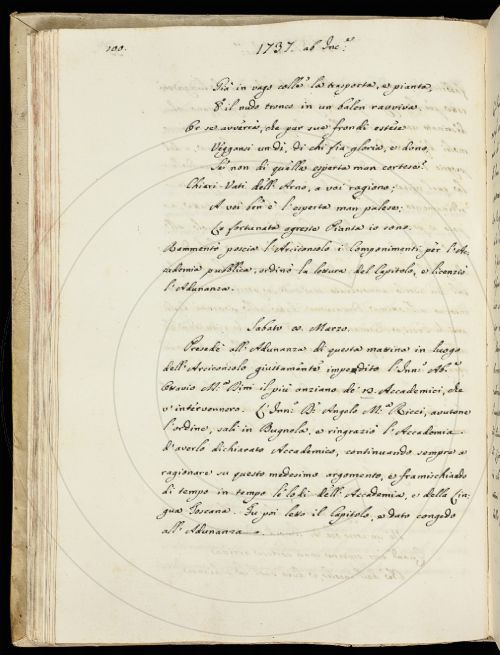 100.
1737. ab Inc.e
Già in vago colle la trasporta, e pianta,
E il nudo tronco in un balen ravviva.
Or se avverrà, che pur sue frondi estese
Veggansi un dì, di chi fia gloria, e dono,
Se non di quella esperta man cortese?
Chiari Vati dell'Arno, a voi ragiono;
A voi ben è l'esperta man palese;
Io fortunata agreste Pianta io sono.
Rammentò poscia l'Arciconsolo i Componimenti per l'Ac-
cademia pubblica, ordinò la lettura del Capitolo, e licenziò
l'Adunanza.
Sabato Marzo.
Presedè all'Adunanza di questa mattina in luogo
dell'Arciconsolo giustamente impedito l'Inn. Ab.e
Ottavio M.a Bini il più anziano de' Accademici, che
v'intervennero. L'Inn. Angelo M.a Ricci, avutone
l'ordine, salì in Bugnola, e ringraziò l'Accademia
d'averlo dichiarato Accademico, continuando sempre a
ragionare su questo medesimo argomento, e frammischiando
di tempo in tempo le lodi dell'Accademia, e della Lin-
gua Toscana. Fu poi letto il Capitolo, e dato congedo
all'Adunanza.